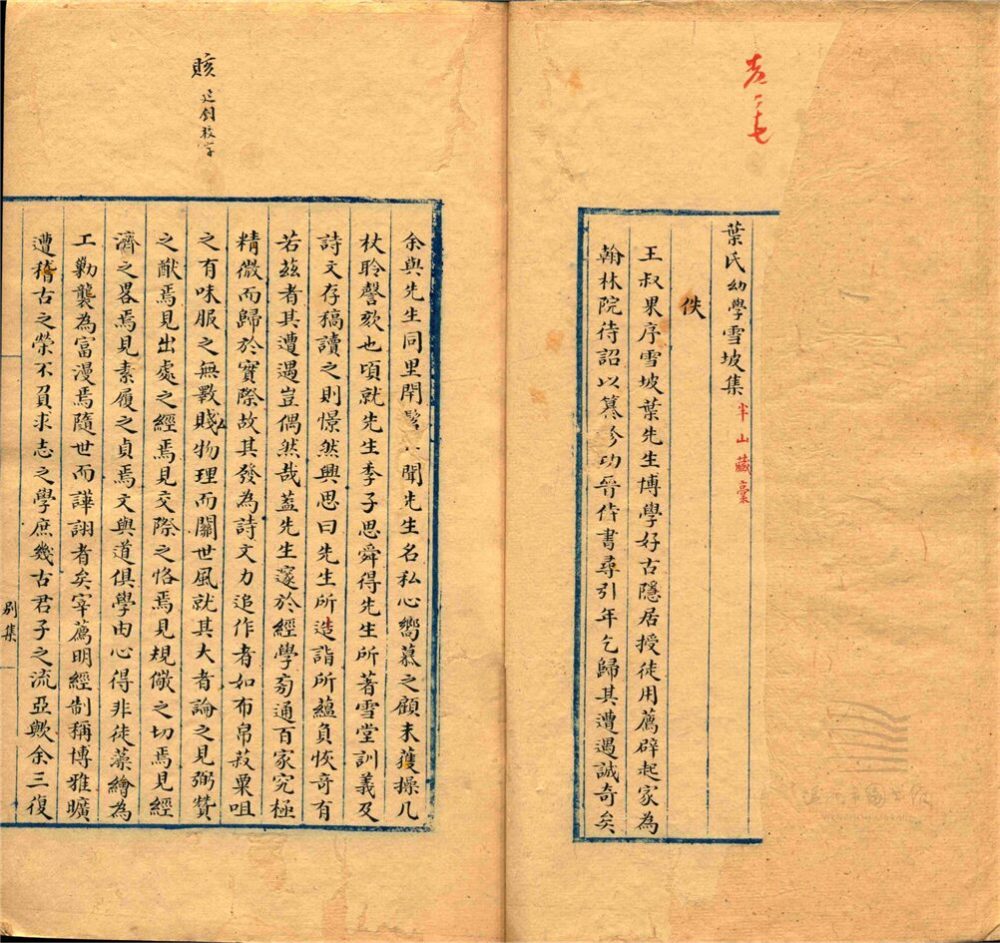 卷二七
葉氏幼學雪坡集半山藏稾
佚
王叔果序雪坡葉先生博學好古隱居授徒用薦辟起家為
翰林院待詔以纂修功晉侍書尋引年乞歸其遭遇誠奇矣
余與先生同里閈 聞先生名私心嚮慕之顧未獲操几
杖聆謦欬也頃就先生季子思舜得先生所著雪堂訓義及
詩文存稿讀之則憬然興思曰先生所造詣所蘊負恢奇有
若茲者其遭遇豈偶然哉蓋先生邃於經學旁通百家究極
精微而歸於實際故其發為詩文力追作者如布帛菽粟咀
之有味服之無斁賤物理而關世風就其大者論之見弼贊
之猷焉見出處之經焉見交際之恪焉見規儆之切焉見經
濟之畧焉見素履之貞焉文與道俱學由心得非徒藻繪為
工勦襲為富漫焉隨世而譁詡者矣宰薦明經制稱博雅曠
遭稽古之榮不負求志之學庶幾古君子之流亞歟余三復
賅
別集